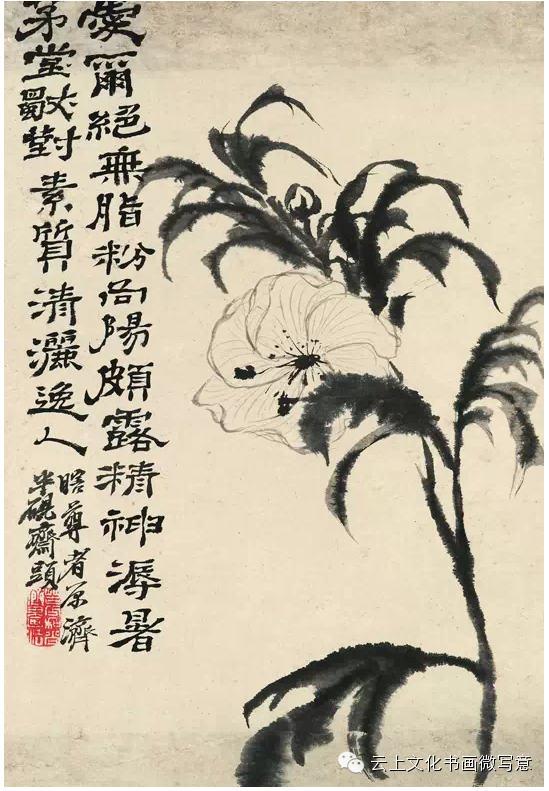 愛爾絕無脂粉向陽頗露精神溽暑
茅堂獨對素質清灑逸人
瞎尊者原濟
半硯齋頭
云上文化书画微写意